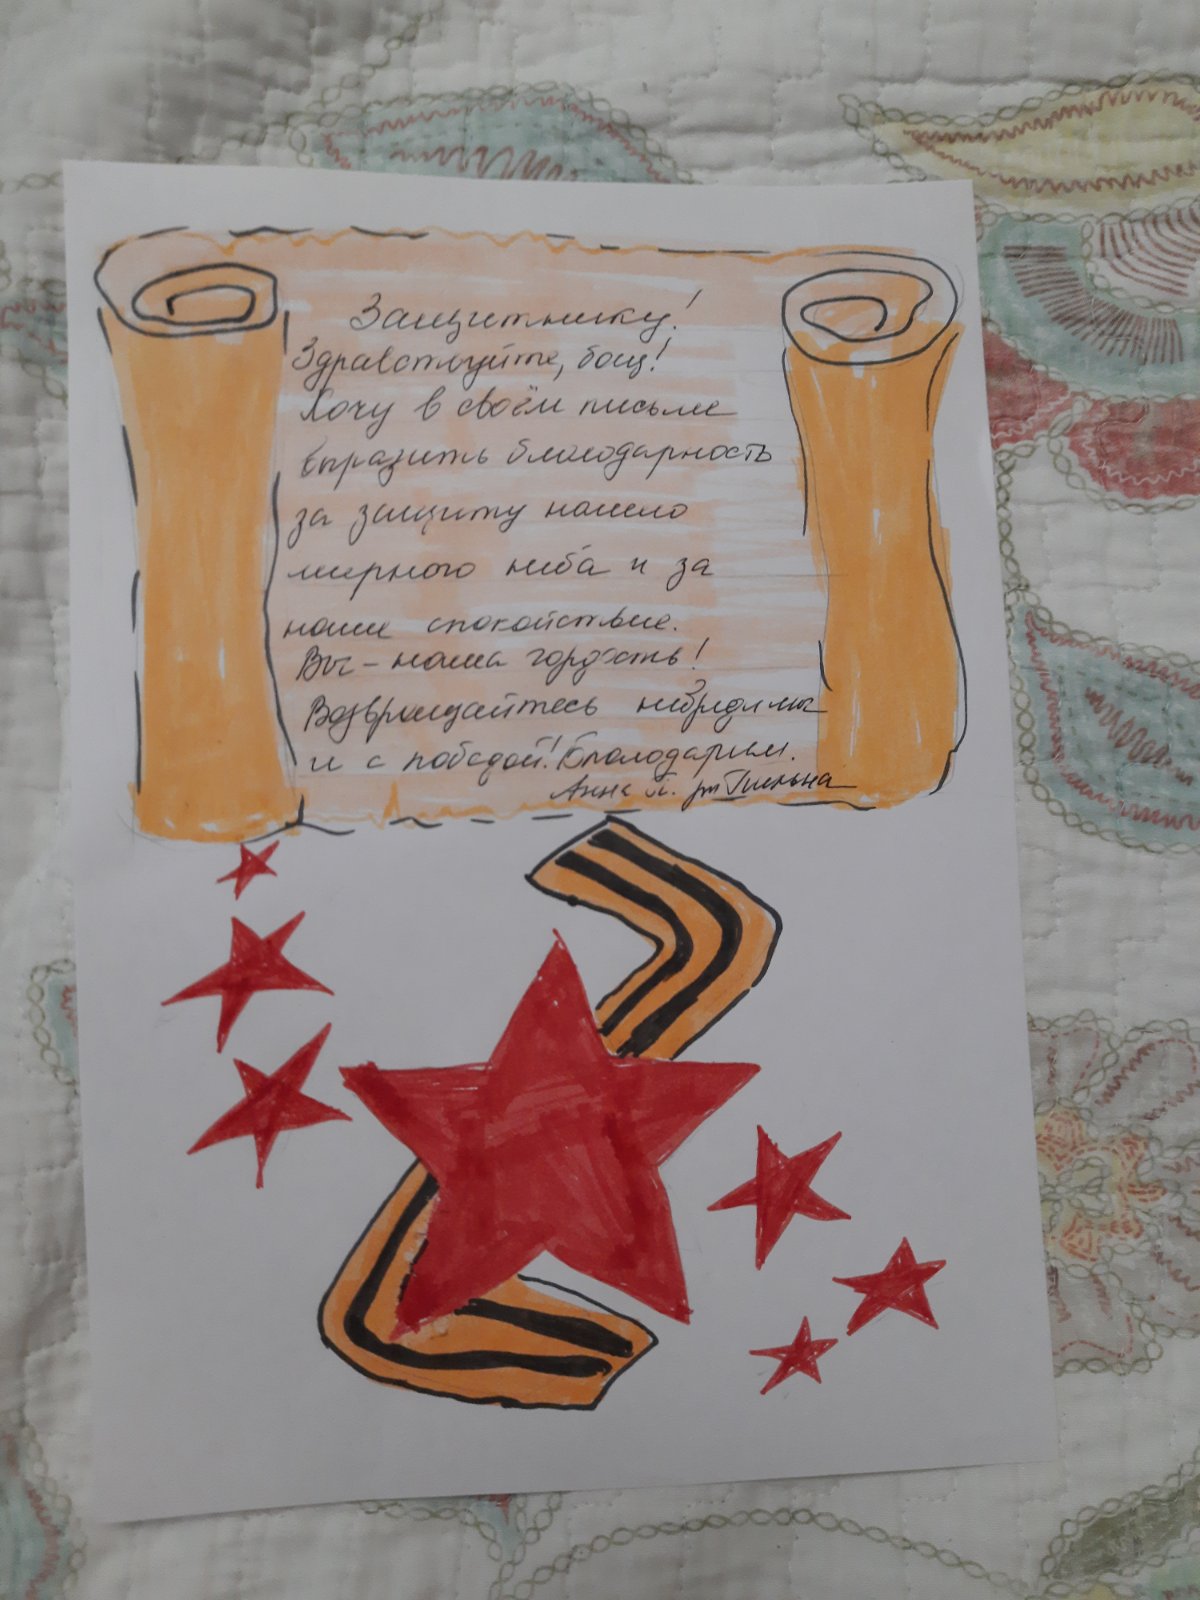 Защитнику!
Здравствуйте, боец!
Хочу в своём письме
выразить благодарность
за защиту нашего
мирного неба и за
наше спокойствие.
Вы - наша гордость!
Возвращайтесь невредимы
и с победой! Благодарим.
Анна Л.